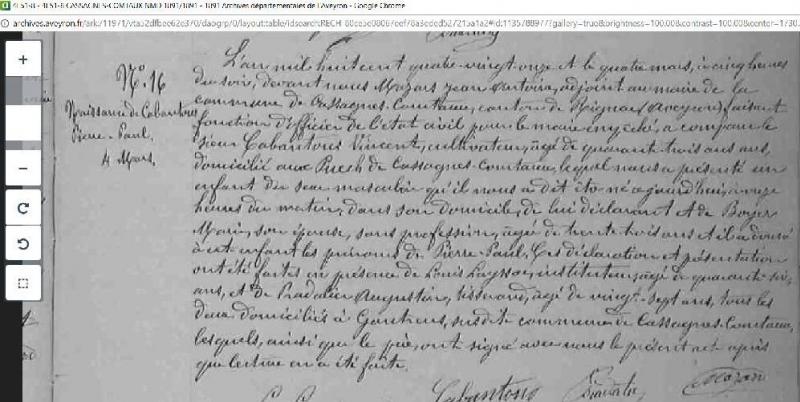 4E51-8 - 4E51-8 CASSAGNES-COMTAUX NMD 1891/1891 - 1891 Archives départementales de l'Aveyron - Google Chrome
archives.aveyron.fr/ark:/11971/vta52dfbee62e370/daogrp/0/layout:table/idsearch:RECH
N° 16
Naissance de Cabantous
Pierre-Paul.
4 Mars.
L'an mil huit cent quatre-vingt-onze et le quatre mars, à cinq heures
du soir, devant nous Mazars Jean Antoine, adjoint au maire de la
commune de Cassagnes-Comtaux, canton de Rignac (Aveyron) faisant
fonction d'officier de l'état civil pour le maire empêché, a comparu le
sieur Cabantous Vincent, cultivateur, âgé de quarante-trois ans,
domicilié aux Puech de Cassagnes-Comtaux, lequel nous a présenté un
enfant du sexe masculin qu'il nous a dit être né aujourd'hui, à onze
heures du matin, dans son domicile, de lui déclarant et de Boyer
Marie, son épouse, sans profession, âgée de trente trois ans et il a donné
à cet enfant les prénoms de Pierre-Paul. Ces déclaration et présentation
ont été faites en présence de Louis Layssac, instituteur, âgé de quarante-six
ans, et de Pradalier Augustin, tisserand, âgé de vingt-sept ans, tous les
deux domiciliés à Goutrens, susdite commune de Cassagnes-Comtaux,
lesquels, ainsi que le père, ont signé avec nous le présent acte après
que lecture en a été faite.
Cabantous
Mazars